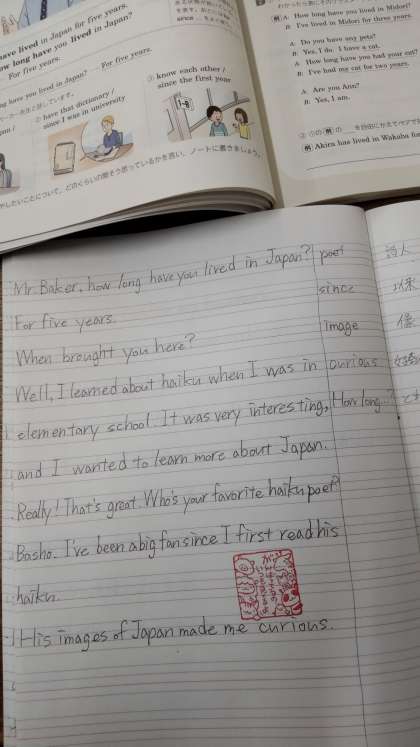 have lived in Japan for five years.
how long have you lived in Japan?
For five years.
long have you lived in Japan? For five years.
② have that dictionary /
since I was in university
③ know each other /
since the first year
1-B
例 A: How long have you lived in Midori?
B: I've lived in Midori for three years.
A: Do you have any pets?
B: Yes, I do. I have a cat.
A: How long have you had your cat?
B: I've had my cat for two years.
A: Are you Ann?
B: Yes, I am.
例 Akira has lived in Wakaba
Mr. Baker, how long have you lived in Japan?
For five years.
When brought you here?
Well, I learned about haiku when I was in
elementary school. It was very interesting,
and I wanted to learn more about Japan.
Really! That's great. Who's your favorite haiku poet?
Basho. I've been a big fan since I first read his
haiku.
His images of Japan made me curious.
poet 詩人
since
image 像
curious
How long...?